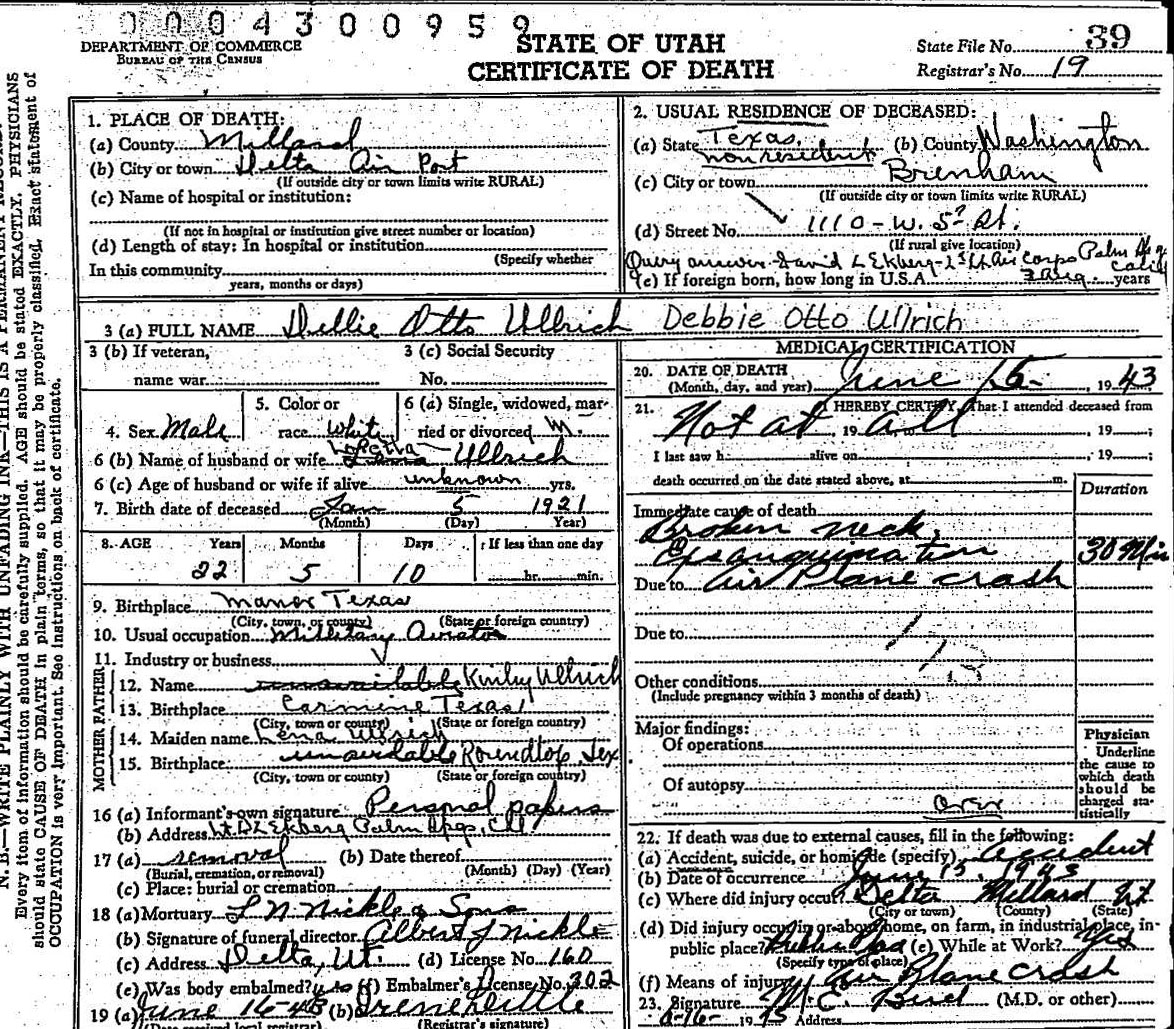 0004300959
DEPARTMENT OF COMMERCE
BUREAU OF THE CENSUS
STATE OF UTAH
CERTIFICATE OF DEATH
State File No. 39
Registrar's No. 19
N. B.—WRITE PLAINLY WITH UNFADING INK—THIS IS A PERMANENT RECORD
Every item of information should be carefully supplied. AGE should be stated EXACTLY. PHYSICIANS
should state CAUSE OF DEATH in plain terms, so that it may be properly classified. Exact statement of
OCCUPATION is very important. See instructions on back of certificate.
1. PLACE OF DEATH:
(a) County Millard
(b) City or town Delta Air Port
(If outside city or town limits write RURAL)
(c) Name of hospital or institution:
(If not in hospital or institution give street number or location)
(d) Length of stay: In hospital or institution
(Specify whether
In this community
years, months or days)
2. USUAL RESIDENCE OF DECEASED:
(a) State Texas. (b) County Washington
nonresident
(c) City or town Brenham
(If outside city or town limits write RURAL)
(d) Street No. 1110 - W. 5? St.
(If rural give location)
Query answer - David L Ekberg - 1st Lt Air Corps Palm Spg Calif
(e) If foreign born, how long in U.S.A. 3 Aug. years
3 (a) FULL NAME Dellie Otto Ullrich Debbie Otto Ullrich
3 (b) If veteran,
name war
3 (c) Social Security
No.
4. Sex Male
5. Color or
race White
6 (a) Single, widowed, mar-
ried or divorced M.
6 (b) Name of husband or wife Loretta Ullrich
6 (c) Age of husband or wife if alive unknown yrs.
7. Birth date of deceased Jan 5 1921
(Month) (Day) Year)
8. AGE Years Months Days If less than one day
22 5 10 hr. min.
9. Birthplace Manor Texas
(City, town, or county) (State or foreign country)
10. Usual occupation Millitary Aviator
11. Industry or business
FATHER
12. Name unavailable Ullrich
13. Birthplace Carmine Texas
(City, town or county) (State or foreign country)
MOTHER
14. Maiden name Lena Ullrich
15. Birthplace Roundtop Tex
(City, town or county) (State or foreign country)
16 (a) Informant's own signature Personal papers
(b) Address Lt. D L Ekberg Palm Spgs, Cal
17 (a) removal (b) Date thereof
(Burial, cremation, or removal) (Month) (Day) (Year)
(c) Place: burial or cremation
18 (a) Mortuary L N Nickle & Sons
(b) Signature of funeral director Albert J Nickle
(c) Address Delta, Ut. (d) License No. 160
(e) Was body embalmed? (f) Embalmer's License No. 302
19 (a) June 16-43 (b) Irene
(Date received local registrar) (Registrar's signature)
MEDICAL CERTIFICATION
20. DATE OF DEATH
(Month, day, and year) June 15, 1943
21. I HEREBY CERTIFY, That I attended deceased from
Not at, 19 all, 19
I last saw h alive on, 19
death occurred on the date stated above, at m.
Duration
Immediate cause of death
Broken neck,
Exsanguination 30 Min
Due to Air Plane crash
Due to
173
Other conditions
(Include pregnancy within 3 months of death)
Major findings:
Of operations
Of autopsy
over
Physician
Underline
the cause to
which death
should be
charged sta-
tistically
22. If death was due to external causes, fill in the following:
(a) Accident, suicide, or homicide (specify) accident
(b) Date of occurrence June 15, 1943
(c) Where did injury occur? Delta Millard Ut
(City or town) (County) (State)
(d) Did injury occur in or about home, on farm, in industrial place, in
public place? (e) While at Work? Yes
(Specify type of place)
(f) Means of injury Air Plane crash
23. Signature M. E. Bird (M.D. or other)
6-16- 19 Address